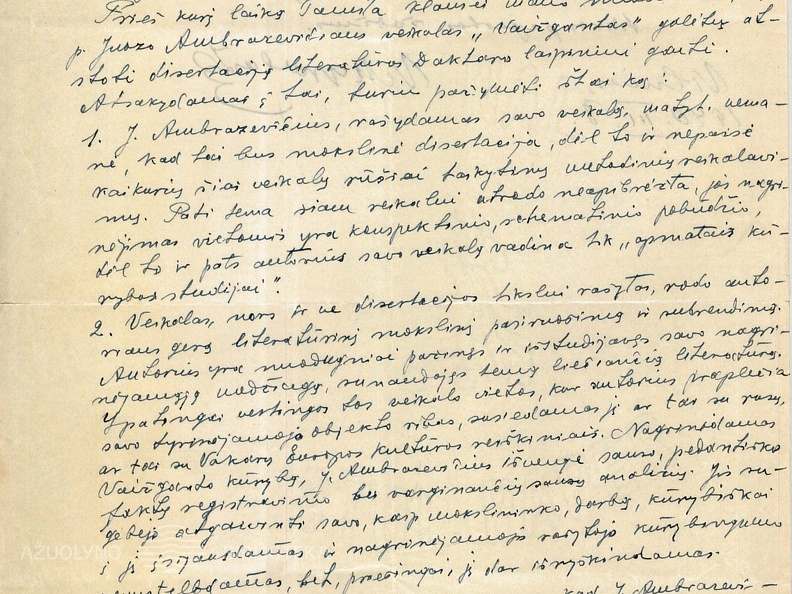 Prieš kurį laiką Tamsta klausei mano
p. Juozo Ambrazevičiaus veikalas „Vaižgantas" galėtų at-
stoti disertaciją literatūros daktaro laipsniui gauti.
Atsakydamas į tai, turiu pažymėti štai ką:
1. J. Ambrazevičius, rašydamas savo veikalą, matyt, nema-
nė, kad tai bus mokslinė disertacija, dėl to ir nepaisė
kaikurių šiai veikalų rūšiai taikytinų metodinių reikalavi-
mų. Pati tema šiam veikalui atrodo neapibrėžta, jos nagri-
nėjimas vietomis yra konspektinio, schematinio pobūdžio,
dėl to ir pats autorius savo veikalą vadina tik „apmatais kū-
rybos studijai".
2. Veikalas, nors ir ne disertacijos tikslui rašytas, rodo auto-
riaus gerą literatūrinį mokslinį pasiruošimą ir subrendimą.
Autorius yra nuodugniai pažinęs ir išstudijavęs savo nagri-
nėjamąją medžiagą, sunaudojęs temą liečiančią literatūrą.
Ypatingai vertingos tos veikalo vietos, kur autorius praplečia
savo tyrinėjamojo objekto ribas, susiedamas jį ar tai su rusų,
ar tai su Vakarų Europos kultūros reiškiniais. Nagrinėdamas
Vaižganto kūrybą, J. Ambrazevičius išvengė sauso, pedantiško
faktų registravimo bei varginančių sausų analizių. Jis su-
gebėjo atgaivinti savo, kaip mokslininko, darbą, kūrybiškai
į jį įsijausdamas ir nagrinėjamojo rašytojo kūrybingumo
bet, priešingai, jį dar išryškindamas.
kad J. Ambrazevi-
AŽUOLYNO